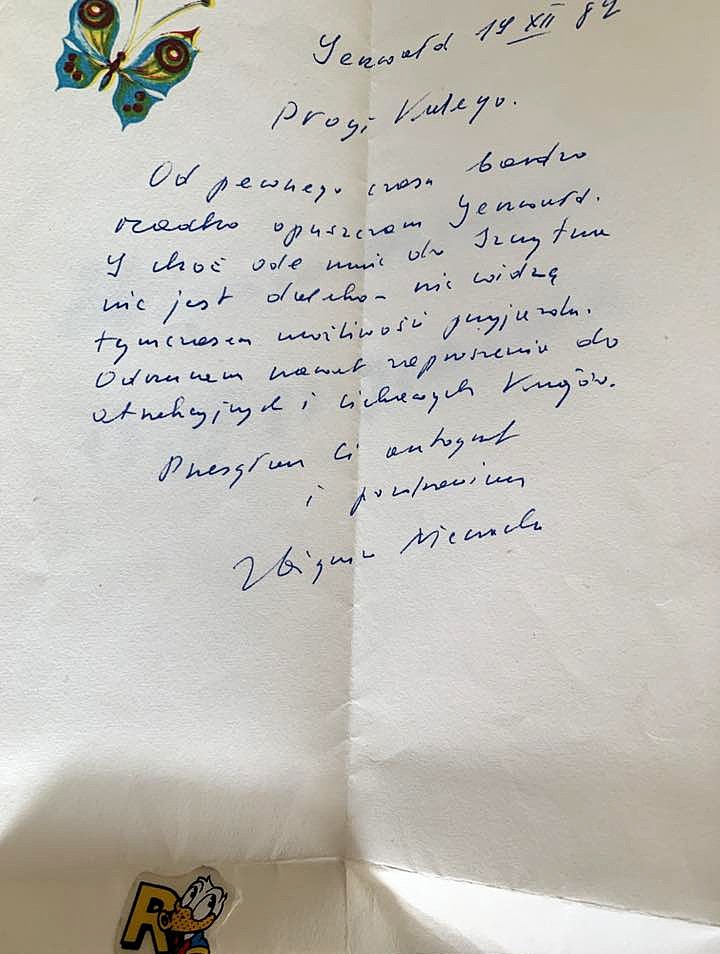 Jerzwałd 14 XII 87
Drogi Kolego.
Od pewnego czasu bardzo
rzadko opuszczam Jerzwałd.
I choć ode mnie do Szczytna
nie jest daleko – nie widzę
tymczasem możliwości przyjazdu.
Odmawiam nawet zaproszeniu do
atrakcyjnych i ciekawych krajów.
Przesyłam Ci autograf
i pozdrowienia
Zbigniew Nienacki
R